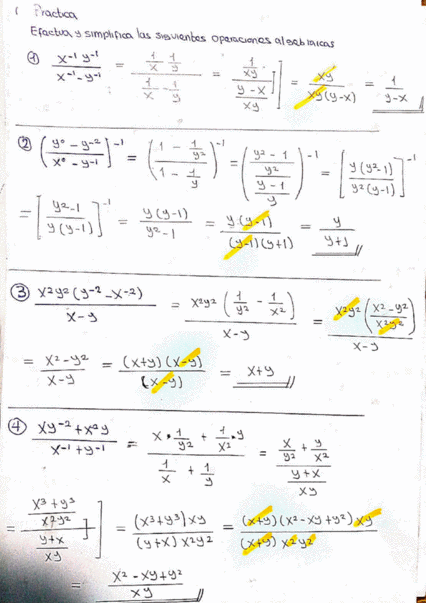 1 Practica
Efectua y simplifica las siguientes operaciones algebraicas
① (x⁻¹ y⁻¹)/(x⁻¹ - y⁻¹) = (1/x 1/y)/(1/x - 1/y) = (1/xy)/((y-x)/xy) ] = xy/(xy(y-x)) = 1/(y-x)
② ((y⁰ - y⁻²)/(x⁰ - y⁻¹))⁻¹ = ((1 - 1/y²)/(1 - 1/y))⁻¹ = (((y²-1)/y²)/((y-1)/y))⁻¹ = [y(y²-1)/(y²(y-1))]⁻¹
= [(y²-1)/(y(y-1))]⁻¹ = y(y-1)/(y²-1) = y(y-1)/((y-1)(y+1)) = y/(y+1)
③ x²y²(y⁻² - x⁻²)/(x-y) = x²y²(1/y² - 1/x²)/(x-y) = x²y²((x²-y²)/(x²y²))/(x-y)
= (x²-y²)/(x-y) = (x+y)(x-y)/(x-y) = x+y
④ (xy⁻² + x⁻²y)/(x⁻¹ + y⁻¹) = (x·1/y² + 1/x²·y)/(1/x + 1/y) = (x/y² + y/x²)/((y+x)/xy)
= ((x³+y³)/(x²y²))/((y+x)/xy) ] = (x³+y³)xy/((y+x)x²y²) = (x+y)(x²-xy+y²)xy/((x+y)x²y²)
= (x²-xy+y²)/xy